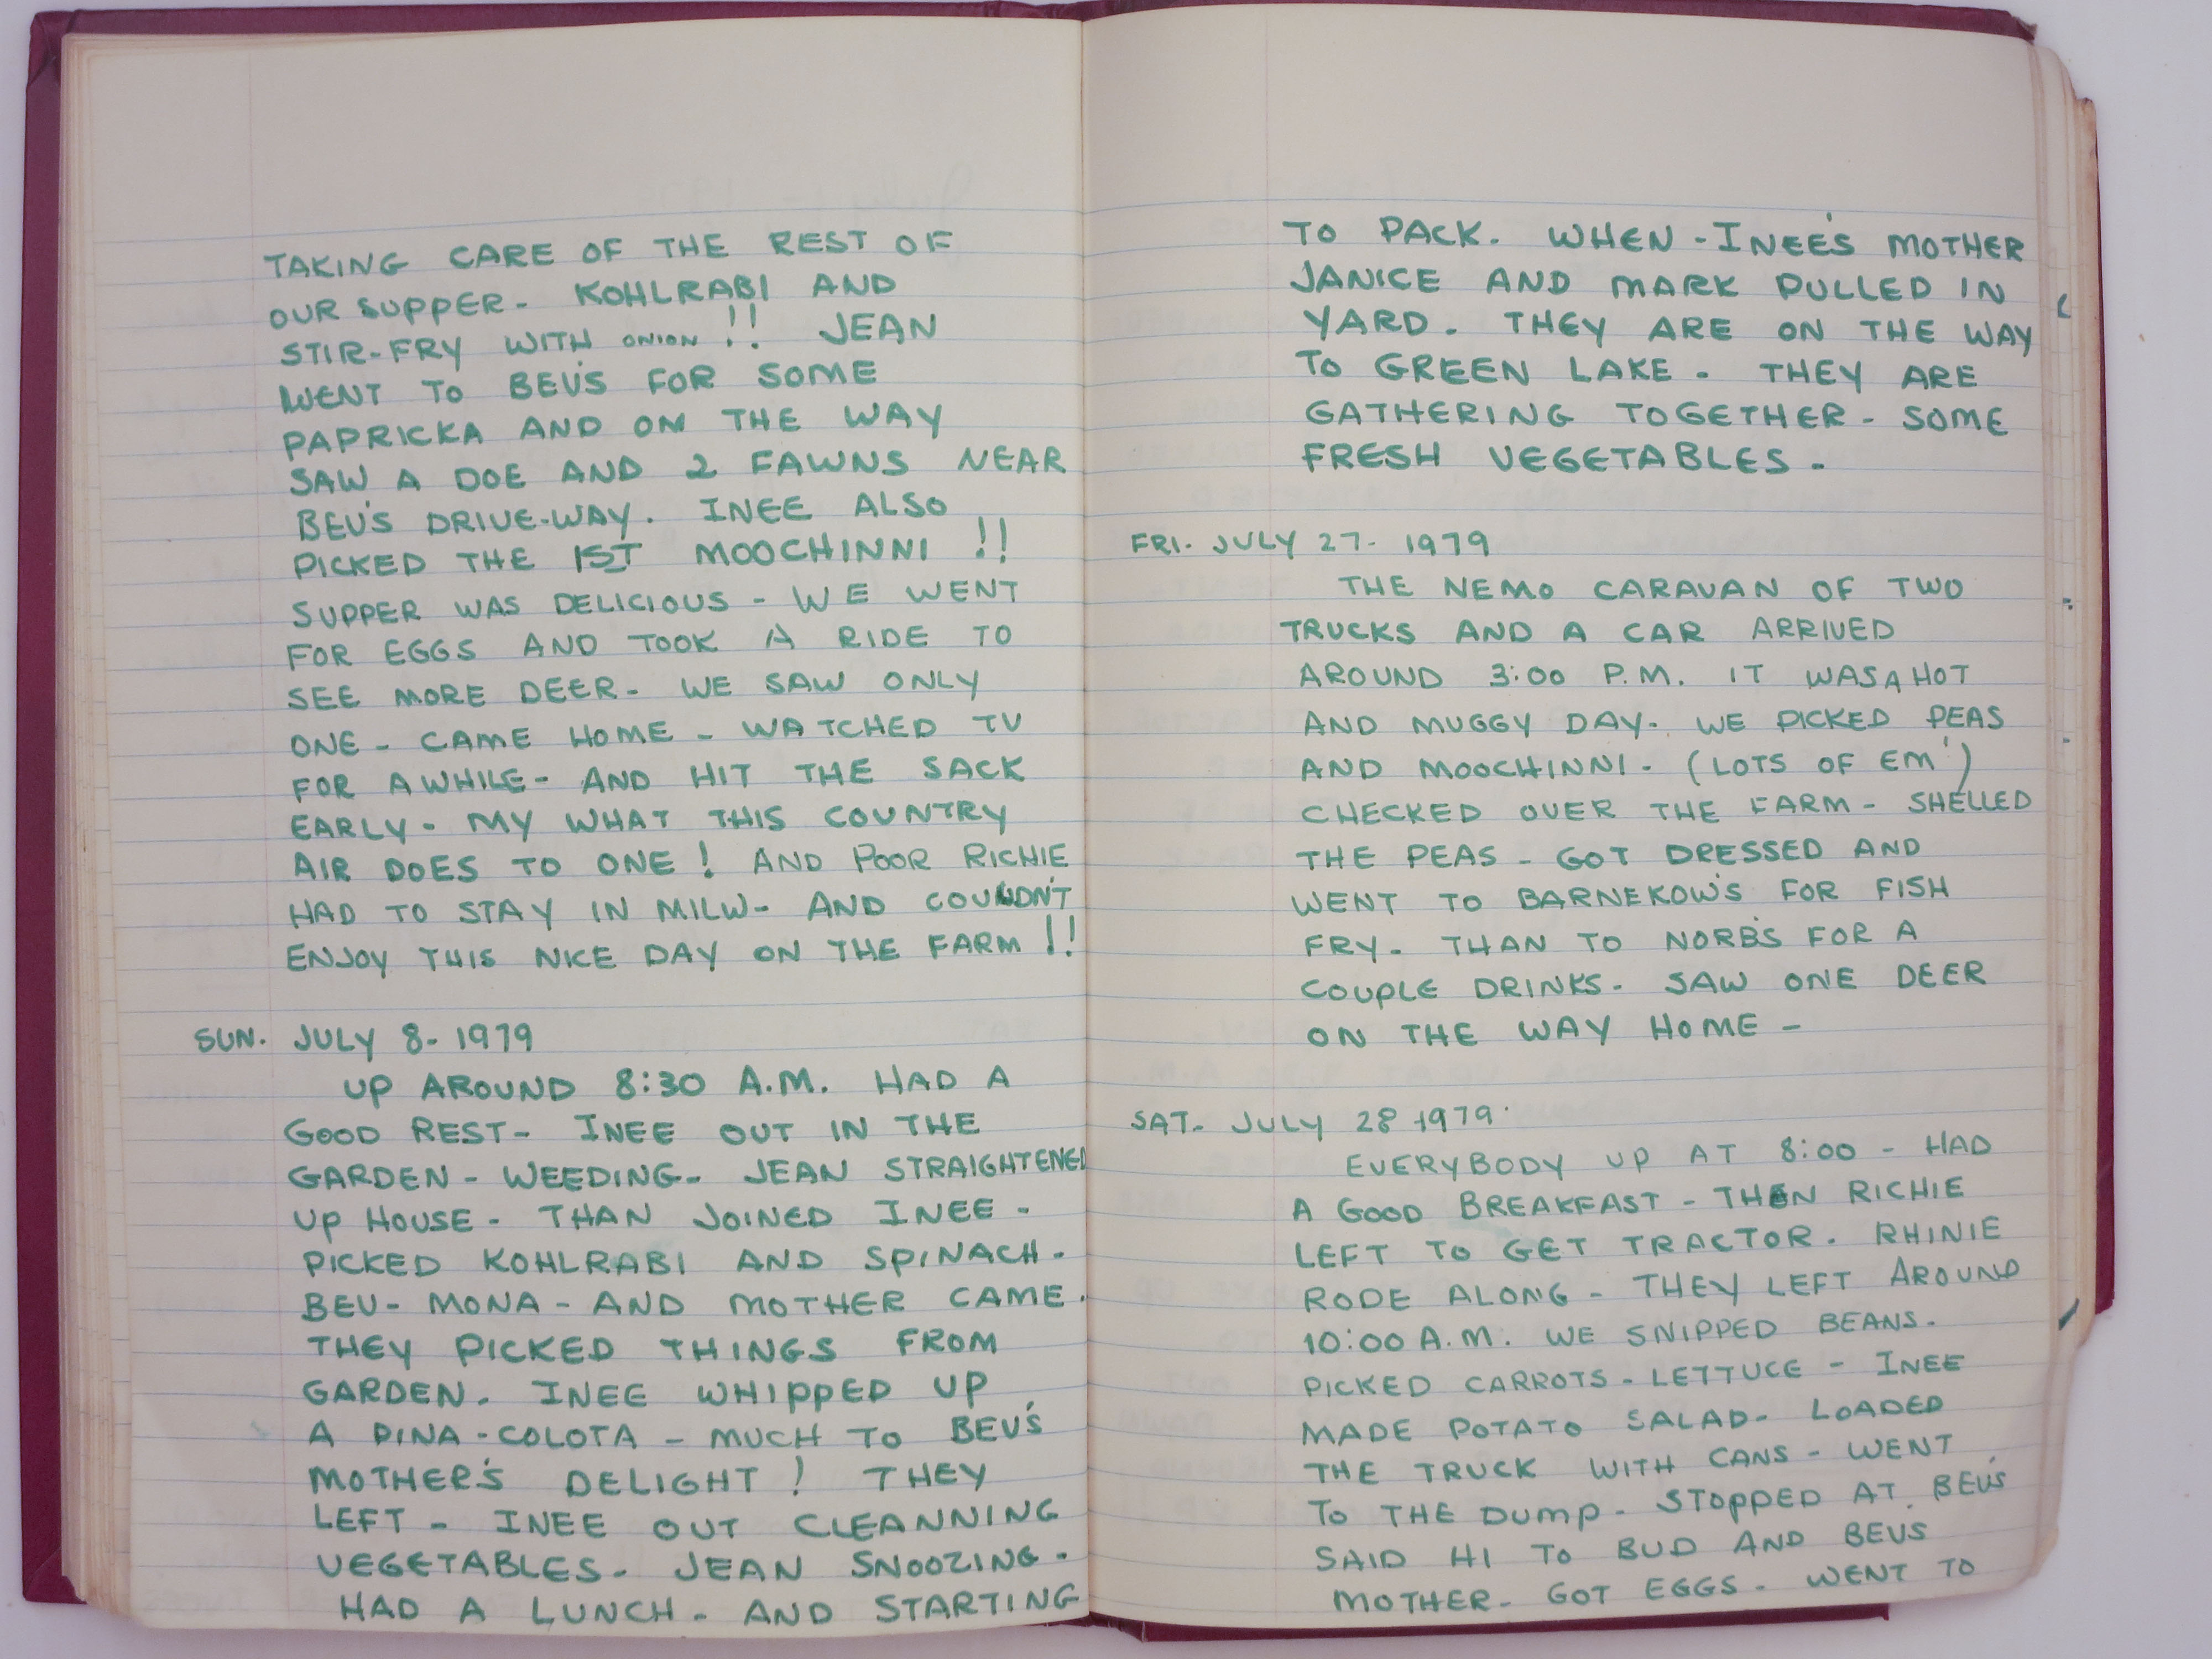 TAKING CARE OF THE REST OF
OUR SUPPER - KOHLRABI AND
STIR-FRY WITH ONION !! JEAN
WENT TO BEV'S FOR SOME
PAPRICKA AND ON THE WAY
SAW A DOE AND 2 FAWNS NEAR
BEV'S DRIVE-WAY. INEE ALSO
PICKED THE 1ST MOOCHINNI !!
SUPPER WAS DELICIOUS - WE WENT
FOR EGGS AND TOOK A RIDE TO
SEE MORE DEER - WE SAW ONLY
ONE - CAME HOME - WATCHED TV
FOR AWHILE - AND HIT THE SACK
EARLY - MY WHAT THIS COUNTRY
AIR DOES TO ONE ! AND POOR RICHIE
HAD TO STAY IN MILW - AND COULDN'T
ENJOY THIS NICE DAY ON THE FARM !!
SUN. JULY 8 - 1979
UP AROUND 8:30 A.M. HAD A
GOOD REST - INEE OUT IN THE
GARDEN - WEEDING - JEAN STRAIGHTENED
UP HOUSE - THAN JOINED INEE -
PICKED KOHLRABI AND SPINACH -
BEV - MONA - AND MOTHER CAME.
THEY PICKED THINGS FROM
GARDEN. INEE WHIPPED UP
A PINA-COLOTA - MUCH TO BEV'S
MOTHER'S DELIGHT ! THEY
LEFT - INEE OUT CLEANNING
VEGETABLES - JEAN SNOOZING -
HAD A LUNCH - AND STARTING
TO PACK. WHEN - INEE'S MOTHER
JANICE AND MARK PULLED IN
YARD. THEY ARE ON THE WAY
TO GREEN LAKE - THEY ARE
GATHERING TOGETHER - SOME
FRESH VEGETABLES -
FRI. JULY 27 - 1979
THE NEMO CARAVAN OF TWO
TRUCKS AND A CAR ARRIVED
AROUND 3:00 P.M. IT WAS A HOT
AND MUGGY DAY - WE PICKED PEAS
AND MOOCHINNI - (LOTS OF EM')
CHECKED OVER THE FARM - SHELLED
THE PEAS - GOT DRESSED AND
WENT TO BARNEKOW'S FOR FISH
FRY - THAN TO NORB'S FOR A
COUPLE DRINKS - SAW ONE DEER
ON THE WAY HOME -
SAT. JULY 28 1979.
EVERYBODY UP AT 8:00 - HAD
A GOOD BREAKFAST - THEN RICHIE
LEFT TO GET TRACTOR. RHINIE
RODE ALONG - THEY LEFT AROUND
10:00 A.M. WE SNIPPED BEANS -
PICKED CARROTS - LETTUCE - INEE
MADE POTATO SALAD - LOADED
THE TRUCK WITH CANS - WENT
TO THE DUMP - STOPPED AT BEV'S
SAID HI TO BUD AND BEVS
MOTHER - GOT EGGS - WENT TO